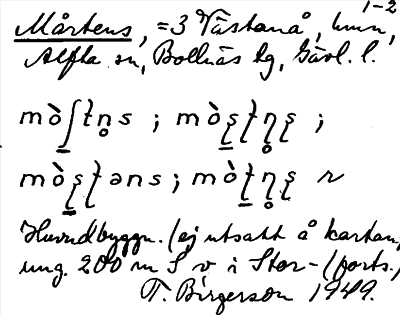 1-2
Mårtens, =3 Västanå, hmn,
Alfta sn, Bollnäs tg, Gävl. l.
mòʃtn̥s ; mòʂʈɳ̥ʂ ;
mòʂʈəns ; mòʈɳ̥ʂ r
Huvudbyggn. (ej utsatt å kartan,
ung. 200 m S v i Stor- (forts.)
T. Birgerson 1949.